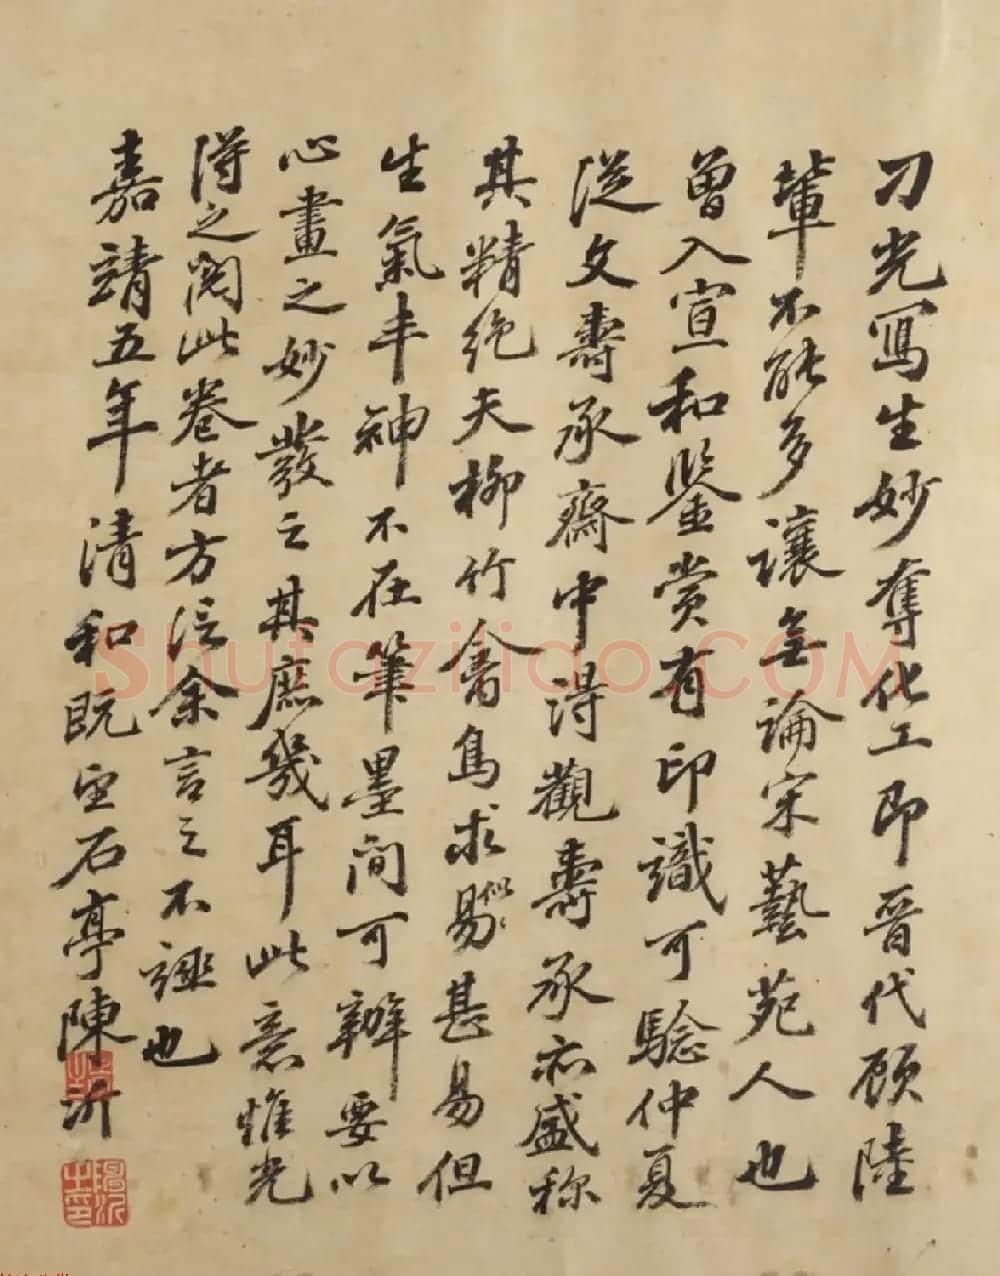 刁光寫生妙奪化工即晉代顧陸
輩不能多讓無論宋藝苑人也
曾入宣和鑒賞有印識可驗仲夏
從文壽承齋中得觀壽承亦盛称
其精絶夫柳竹禽鳥求似易甚易但
生氣丰神不在筆墨间可辦要以
心畫之妙發之其庶幾耳此意惟光
得之閱此卷者方信余言之不誣也
嘉靖五年清和既望石亭陳沂
Shufaziliao.COM